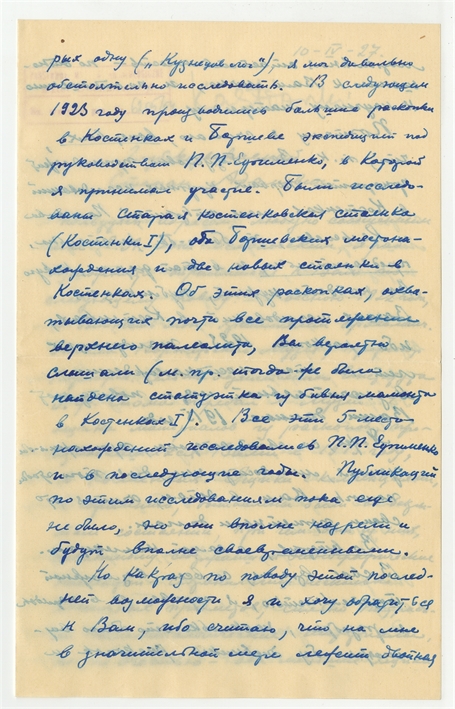 10-IV-27.
рых одну („Кузнецов лог"), я мог довольно
обстоятельно исследовать. В следующем
1923 году производились большие раскопки
в Костенках и Боршеве экспедицией под
руководством П.П.Ефименко, в которой
я принимал участие. Были исследо-
ваны старая костенковская стоянка
(Костенки I), оба Боршевских местона-
хождения и две новых стоянки в
Костенках. Об этих раскопках, охва-
тывающих почти все протяжение
верхнего палеолита, Вы вероятно
слышали (м. пр. тогда-же была
найдена статуэтка из бивня мамонта
в Костенках I). Все эти 5 место-
нахождений исследовались П.П. Ефименко
и в последующие годы. Публикаций
по этим исследованиям пока еще
не было, но они вполне назрели и
будут вполне своевременными.
Но как раз по поводу этой послед-
ней возможности я и хочу обратиться
к Вам, ибо считаю, что на мне
в значительной мере лежит двойная